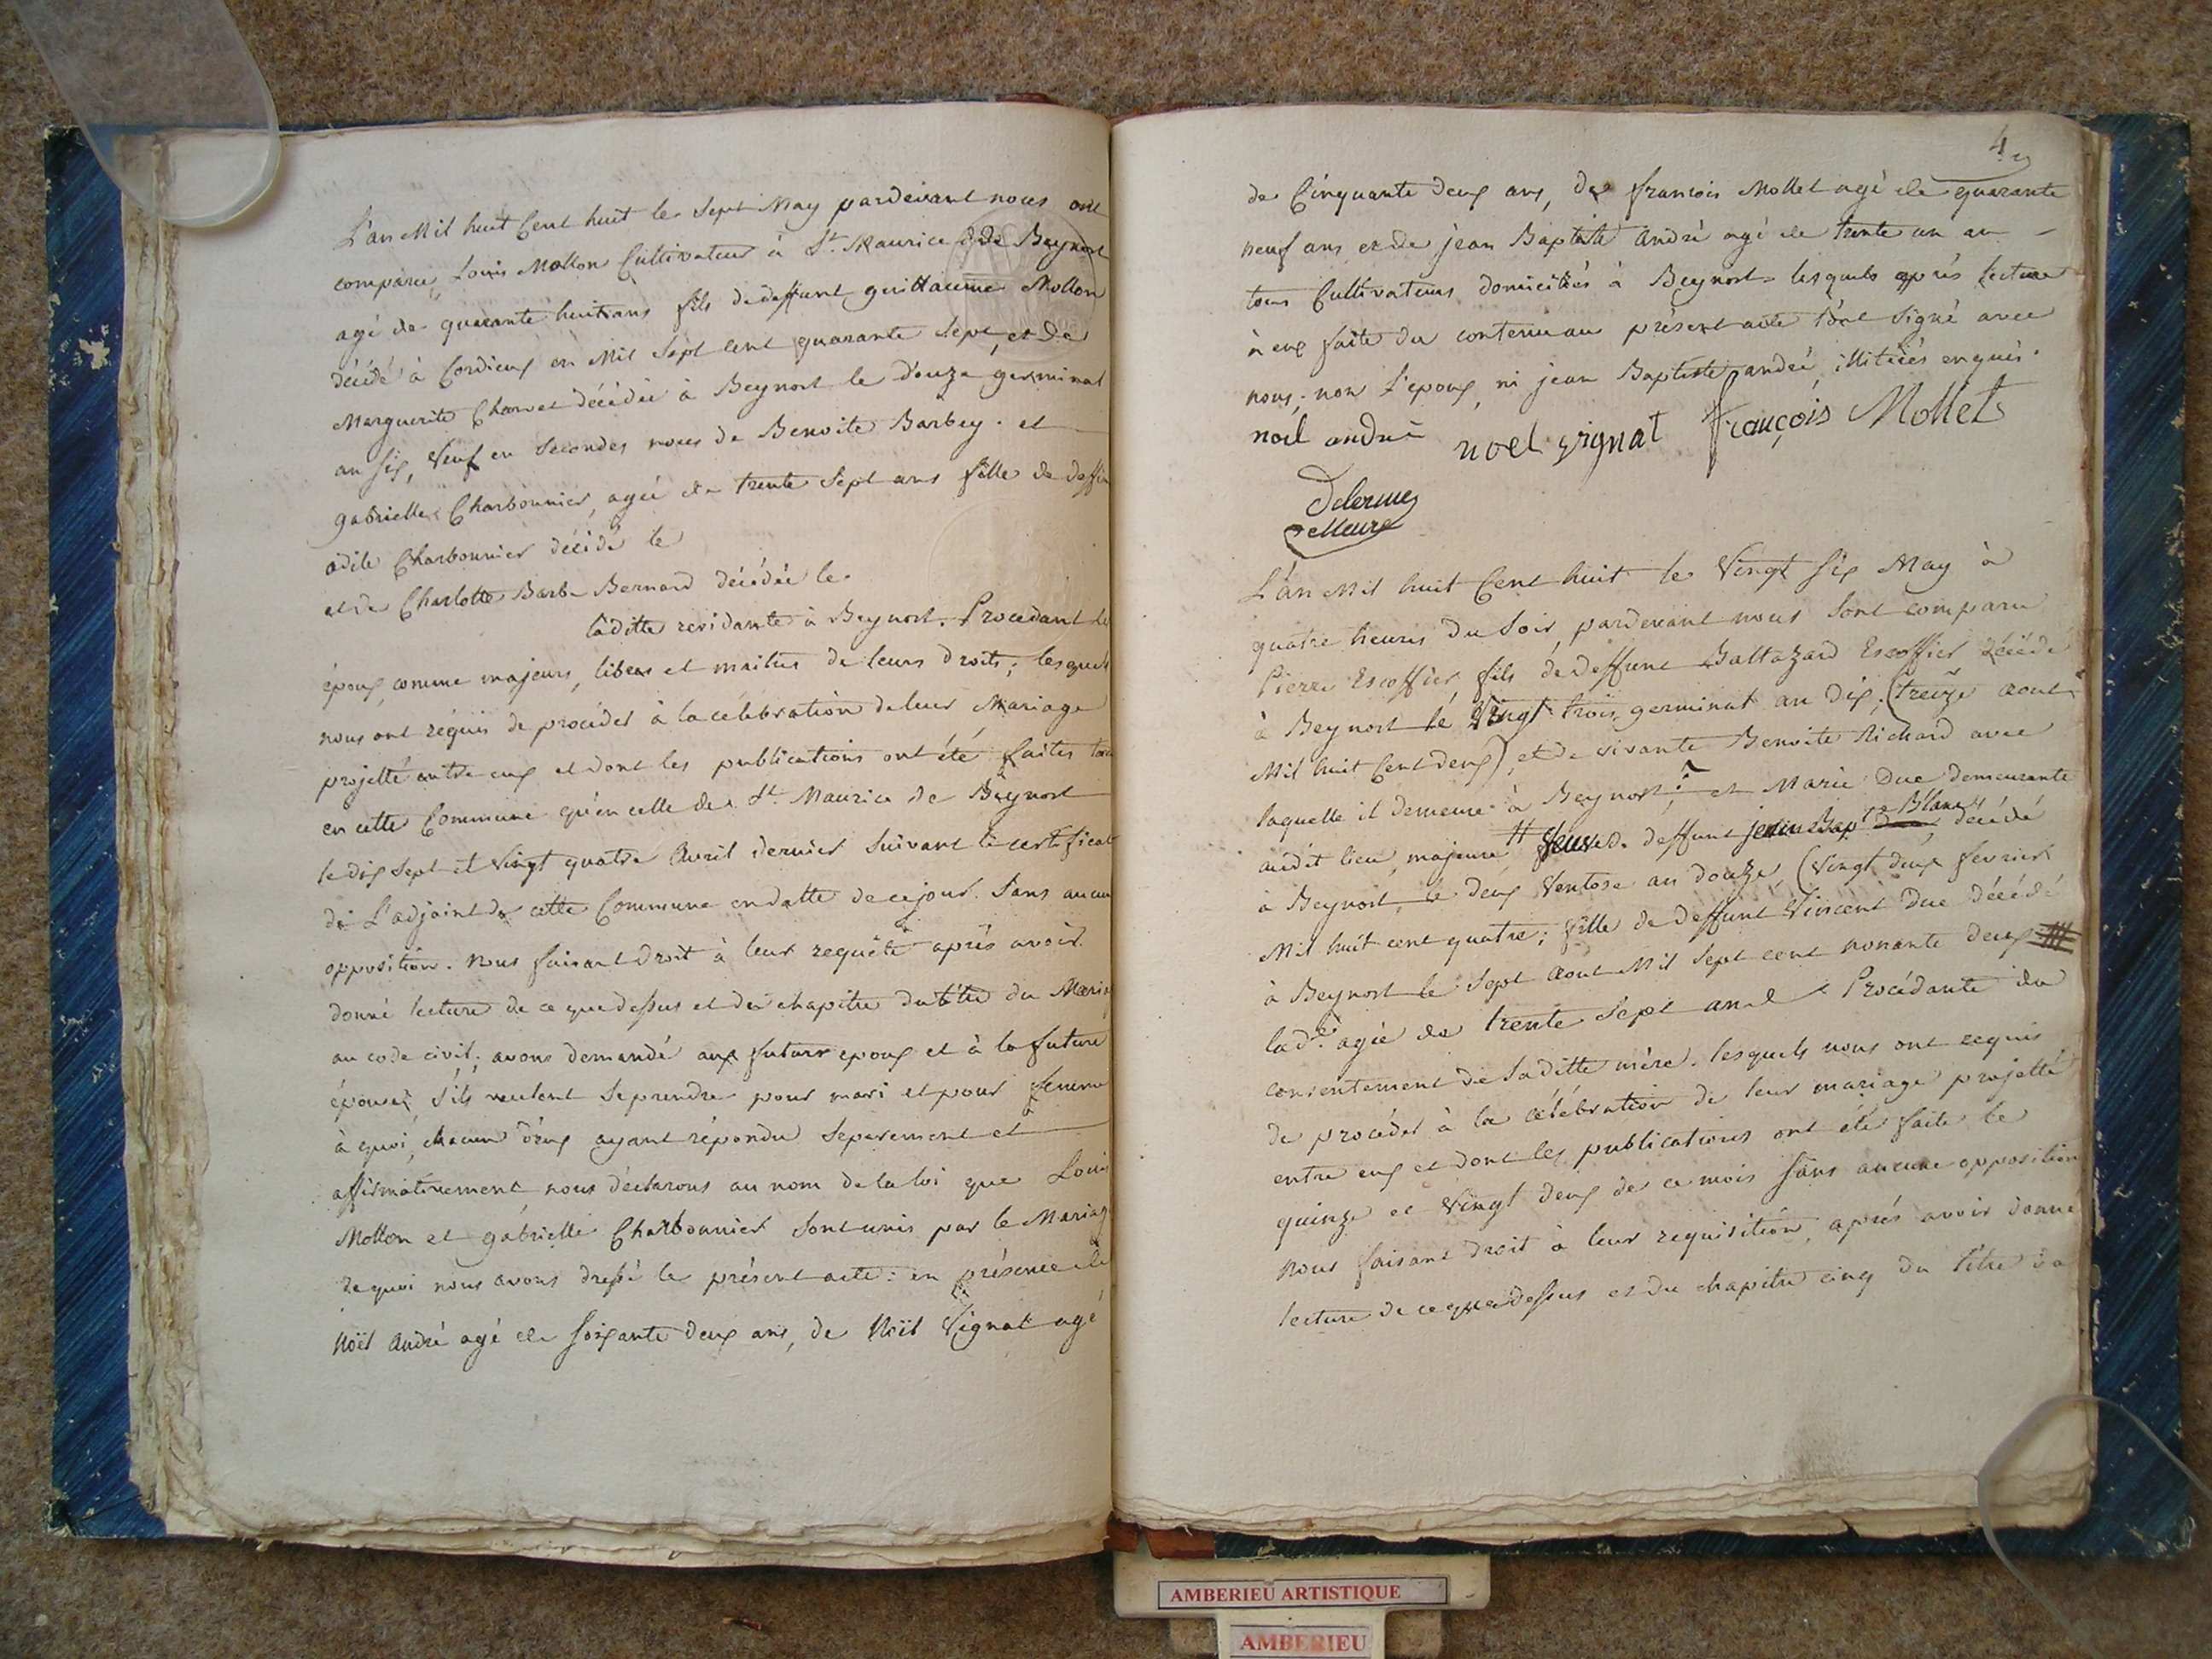 L'an Mil huit Cent huit le Sept May pardevant nous ont
comparu, Louis Mollon Cultivateur à St. Maurice de Beynost
agé de quarante huit ans fils de deffunt guillaume Mollon
décédé à Cordieux en Mil Sept Cent quarante Sept, et de
Marguerite Charvet décédée à Beynost le douze germinal
an Six, Veuf en Secondes noces de Benoite Barbey. et
gabrielle Charbonnier, agée de trente Sept ans fille de deffun
odile Charbonnier décédé le
et de Charlotte Barbe Bernard décédée le
laditte residante à Beynost. Procedant les
époux comme majeurs, libres et maitres de leurs droits; lesquels
nous ont réquis de procéder à la célébration de leur Mariage
projetté entre eux et dont les publications ont été faites tant
en cette Commune qu'en celle de St. Maurice de Beynost
le dix Sept et Vingt quatre Avril dernier Suivant le certificat
de L'adjoint de cette Commune en datte de ce jour. Sans aucune
opposition. Nous faisant Droit à leur requête après avoir
donné lecture de ce que dessus et du chapitre du titre du Mariage
au code civil; avons demandé aux futurs epoux et à la future
épouse, S'ils veulent Se prendre pour mari et pour femme
à quoi, chacun d'eux ayant répondu Séparement et
affirmativement nous déclarons au nom de la loi que Louis
Mollon et gabrielle Charbonnier Sont unis par le Mariage
de quoi nous avons dressé le présent acte: en présence de
Noël André agé de soixante deux ans, de Noël Vignat agé
4
de Cinquante deux ans, de françois Mollet agé de quarante
neuf ans et de jean Baptiste André agé de trente un an
tous Cultivateurs domiciliés à Beynost lesquels après lecture
à eux faite du contenu au présent acte l'ont Signé avec
nous; non L'epoux, ni jean Baptiste andré, illitérés enquis.
noël andré noel vignat François Mollet
Delorme
Maire
L'an Mil huit Cent huit le Vingt Six May à
quatre heures du Soir, pardevant nous Sont comparu
Pierre Escoffier, fils de deffunt Baltazard Escoffier décédé
à Beynost le Vingt trois germinal an dix, (treize aout
Mil huit Cent deux), et de vivante Benoite Richard avec
laquelle il demeure à Beynost; et Marie Duc demeurante
audit lieu, majeure # Veuve de deffunt jean Bapte Blanc, décédé
à Beynost, le deux Ventose an douze, (Vingt deux fevrier
Mil huit cent quatre; fille de deffunt Vincent Duc décédé
à Beynost le Sept Aout Mil Sept cent nonante deux
lade. agée de trente Sept ans Procédante du
consentement de Saditte mère. lesquels nous ont requis
de procéder à la célébration de leur mariage projetté
entre eux et dont les publications ont été faite le
quinze et Vingt deux de ce mois sans aucune opposition
Nous faisant droit à leur requisition, après avoir donné
lecture de ce que dessus et du chapitre cinq du titre du
AMBERIEU ARTISTIQUE
AMBERIEU